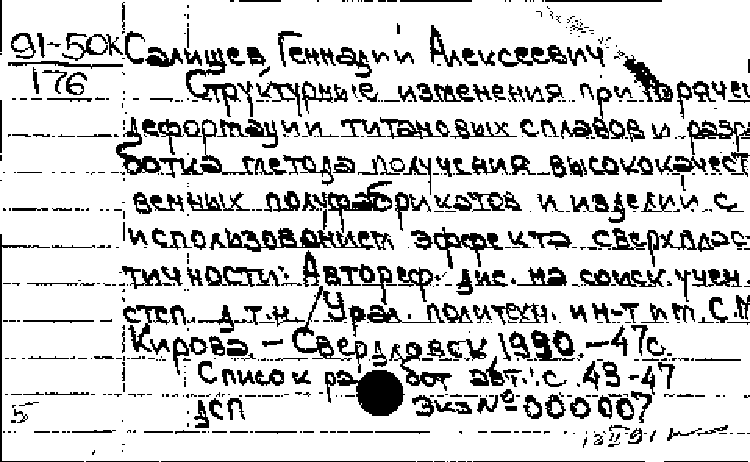 91-50к
176
Салищев Геннадий Алексеевич
Структурные изменения при горячей
деформации титановых сплавов и разра
ботка метода получения высококачест
венных полуфабрикатов и изделий с
использованием эффекта сверхплас
тичности: Автореф. дис. на соиск. учен.
степ. д.т.н. / Урал. политехн. ин-т им. С.М
Кирова. – Свердловск 1990. – 47с.
Список работ авт.: с. 43-47
ДСП Экз № 000007
5